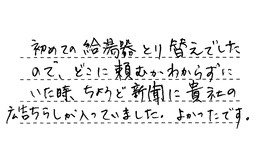 初めての給湯器とり替えでした
ので、どこに頼むかわからずに
いた時、ちょうど新聞に貴社の
広告ちらしが入っていました。よかったです。